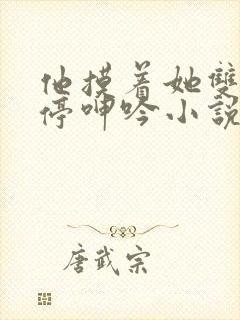 他摸着她雙
停呻吟小說
唐武宗